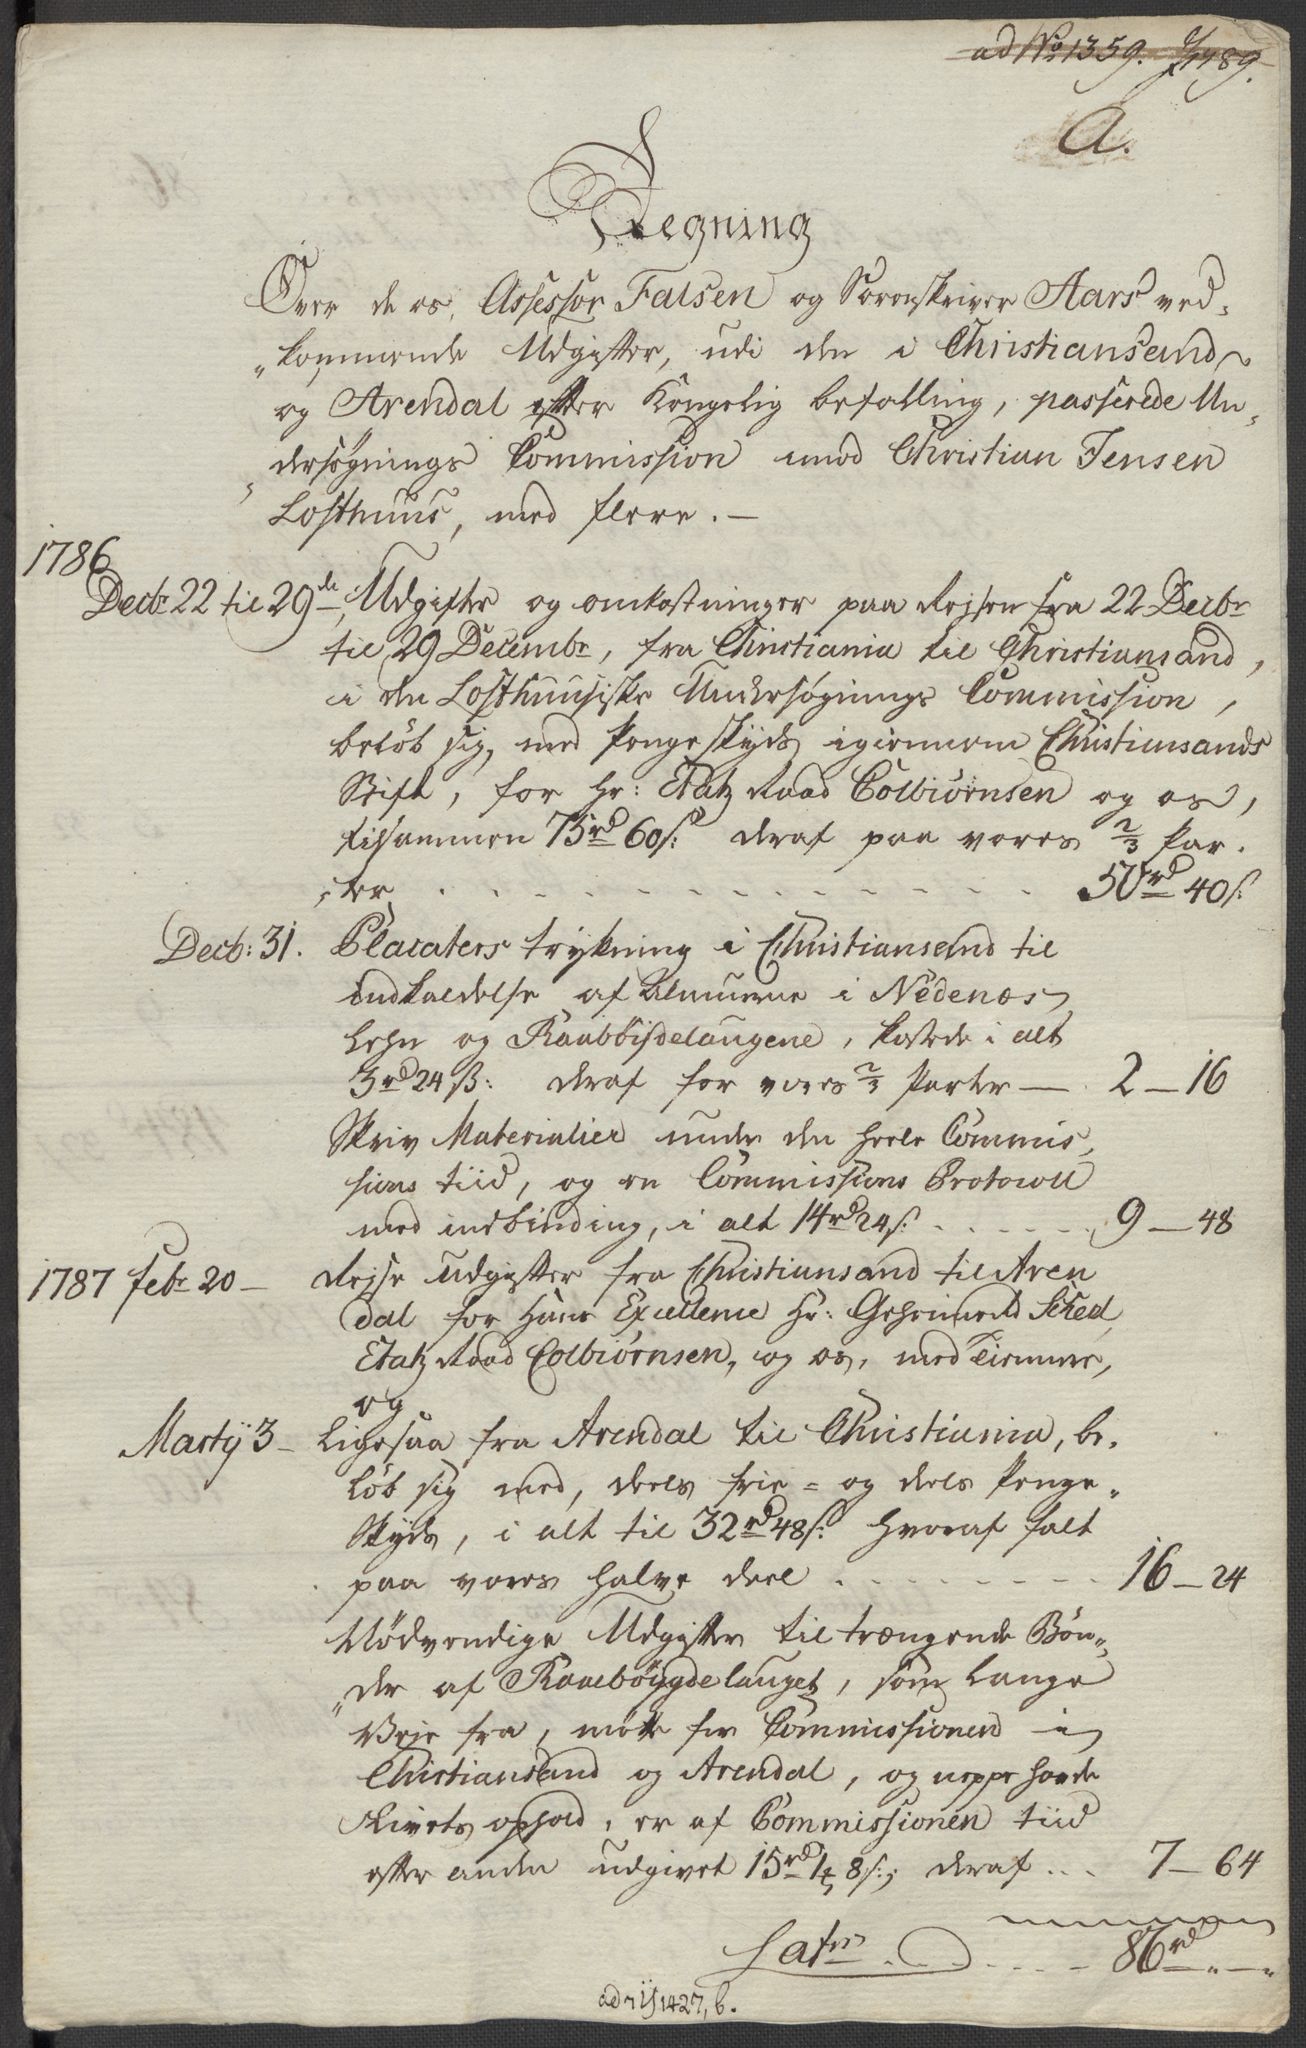 ad No 1359. 1789.
A.
Regning
Over de os, Assessor Falsen og Sorenskriver Aars ved-
kommende Udgifter, udi den i Christiansand
og Arendal efter Kongelig befalling, passerede Un-
dersøgnings Commission imod Christian Jensen
Lofthuus, med flere. —
1786
Decbr 22 til 29de Udgifter og omkostninger paa Rejsen fra 22 Decbr
til 29 Decembr, fra Christiania til Christiansand,
i den Lofthuusiske Undersøgnings Commission,
beløb sig, med Penge skyds igiennem Christiansands
Stift, for Hr: Etatz Raad Colbiørnsen og os,
tilsammen 75rd 60s: deraf paa vores 2/3 Par-
ter . . . . . 50rd 40s.
Decb: 31. Placaters trykning i Christiansand til
Indkaldelse af Almuerne i Nedenæs
Lehn og Raabøisdelaugene, kostede i alt
3rd 24s: deraf for vores 2/3 Parter — 2 — 16
Skriv Materialier under den heele Commis-
sions tiid, og en Commissions Protocoll
med indbinding, i alt 14rd 24s. . . . . 9 — 48
1787 Febr 20 — Rejse udgifter fra Christiansand til Aren
dal for Hans Excellence Hr: Geheimeraad Scheel,
Etatz Raad Colbiørnsen, og os, med Tiennere,
og
Martij 3 — Ligesaa fra Arendal til Christiania, be-
løb sig med, deels frie = og deels Penge-
Skyds, i alt til 32rd 48s: hvoraf falt
paa vores halve deel . . . . . 16 — 24
Nødvendige Udgifter til trængende Bøn-
der af Raaebøygdelauget, som lange
Veje fra, møtte for Commissionen i
Christiansand og Arendal, og neppe havde
Livets ophold, er af Commissionen tiid
efter anden udgivet 15rd 8s.; deraf . . . 7 — 64
Latus . . . . . 86rd " — "
1427, b.